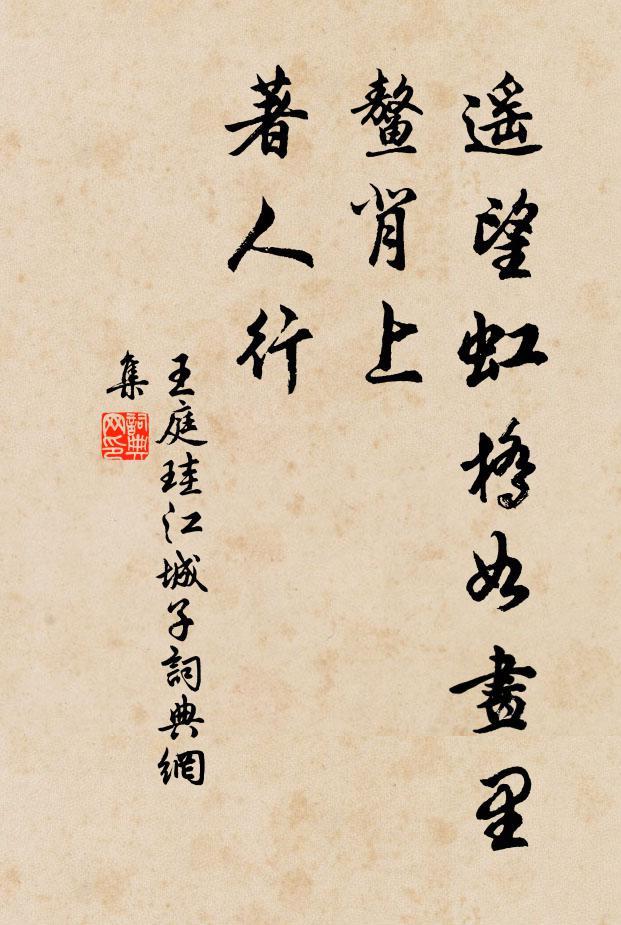 遥望虹橋如畫里
鳌背上
著人行
王庭珪江城子詞典網
集
詞典
网印